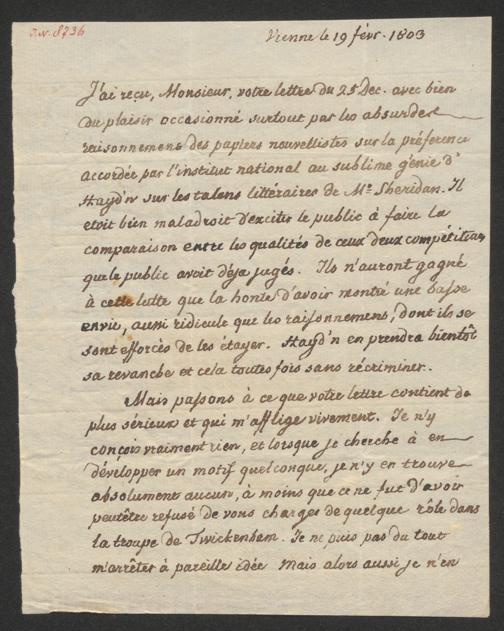 J.N. 8736
Vienne le 19 févr. 1803
J'ai reçu, Monsieur, votre lettre du 25 Dec. avec bien
du plaisir occasionné surtout par les absurdes
raisonnemens des papiers nouvellistes sur la préference
accordée par l'institut national au sublime génie d'
Hayd'n sur les talens littéraires de Mr. Sheridan. Il
etoit bien maladroit d'exciter le public à faire la
comparaison entre les qualités de ceux deux compétiteurs
que le public avoit déja jugés. Ils n'auront gagné
à cette lutte que la honte d'avoir montré une basse
envie, aussi ridicule que les raisonnemens, dont ils se
sont efforcés de les étayer. Hayd'n en prendra bientôt
sa revanche et cela toutes fois sans récriminer.
Mais passons à ce que votre lettre contient de
plus sérieux et qui m'afflige vivement. Je n'y
conçois vraiment rien, et lorsque je cherche à en
développer un motif quelconque, je n'y en trouve
absolument aucun, à moins que ce ne fut d'avoir
peutêtre refusé de vous charges de quelque rôle dans
la troupe de Twickenham. Je ne puis pas du tout
m'arrêter à pareille idée mais alors aussi je n'en